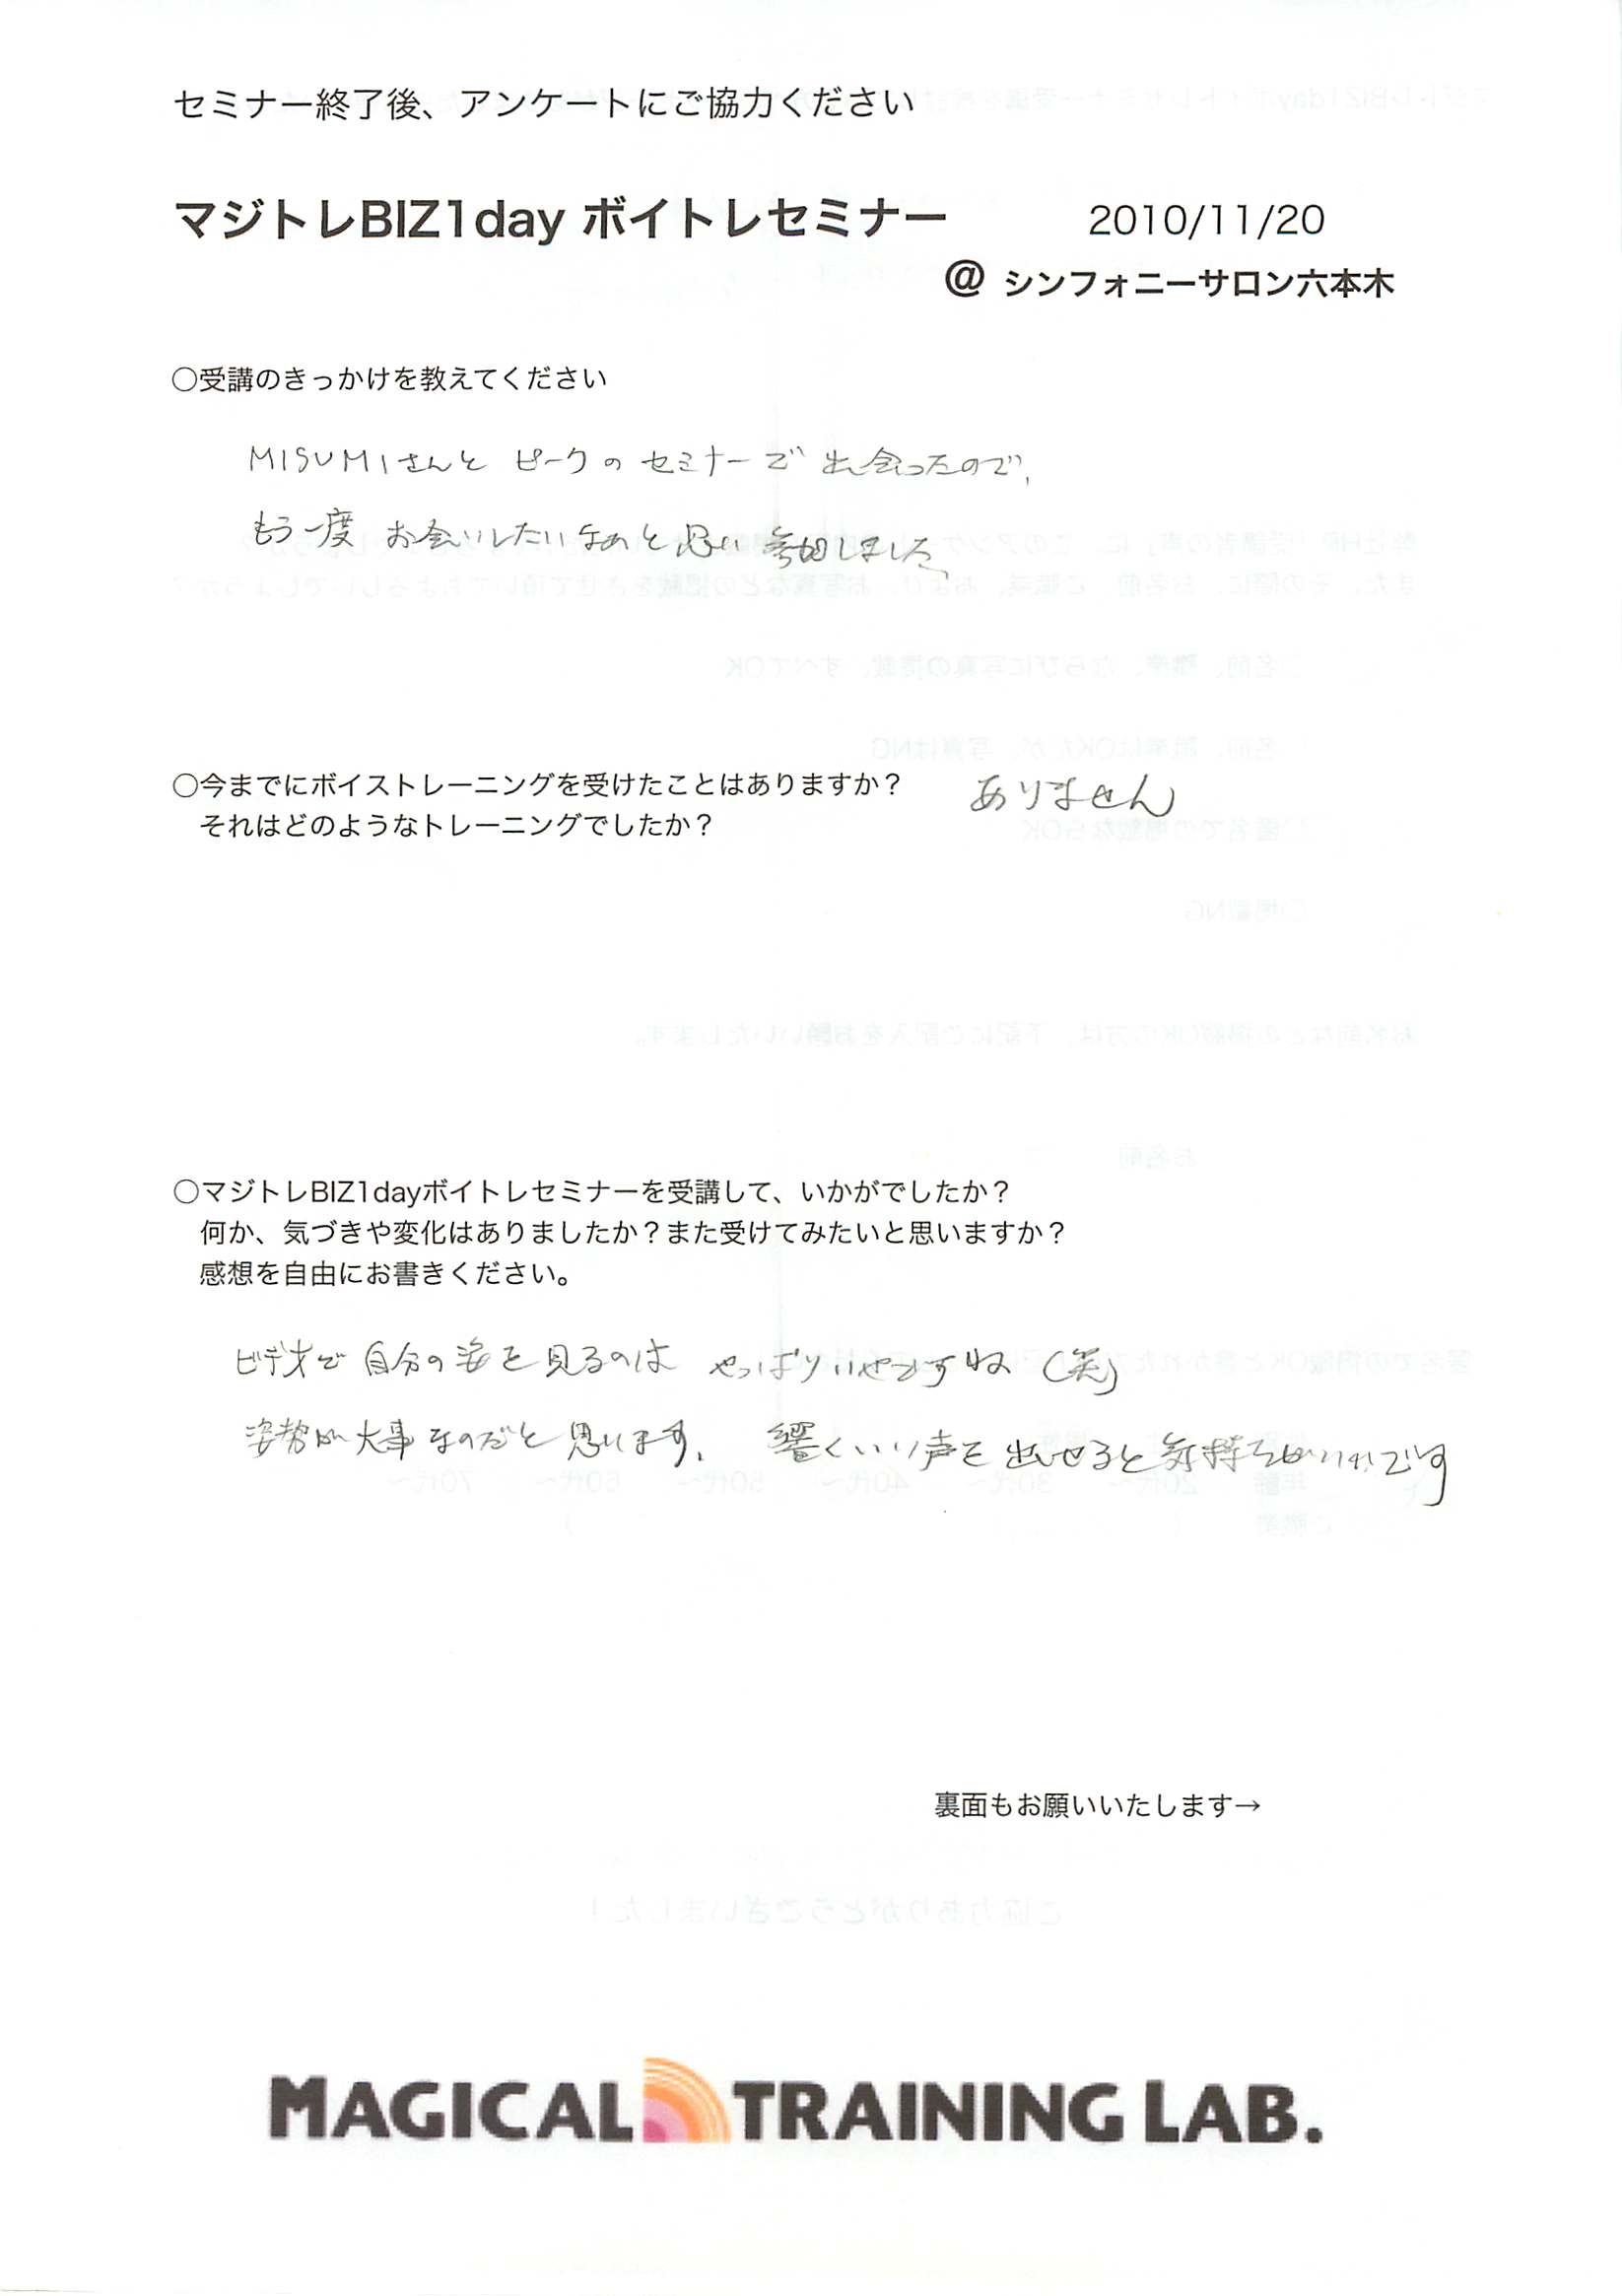 セミナー終了後、アンケートにご協力ください
マジトレBIZ1day ボイトレセミナー 2010/11/20
@ シンフォニーサロン六本木
○受講のきっかけを教えてください
MISUMIさんと ピークの セミナーで 出会ったので、
もう一度 お会いしたいなあと思い 参加しました、
○今までにボイストレーニングを受けたことはありますか? ありません
それはどのようなトレーニングでしたか?
○マジトレBIZ1dayボイトレセミナーを受講して、いかがでしたか?
何か、気づきや変化はありましたか?また受けてみたいと思いますか?
感想を自由にお書きください。
ビデオで 自分の姿を見るのは やっぱりいやですね(笑)
姿勢が大事なのだと思います。 響くいい声を出せると気持ちがいいです
裏面もお願いいたします→
MAGICAL TRAINING LAB.